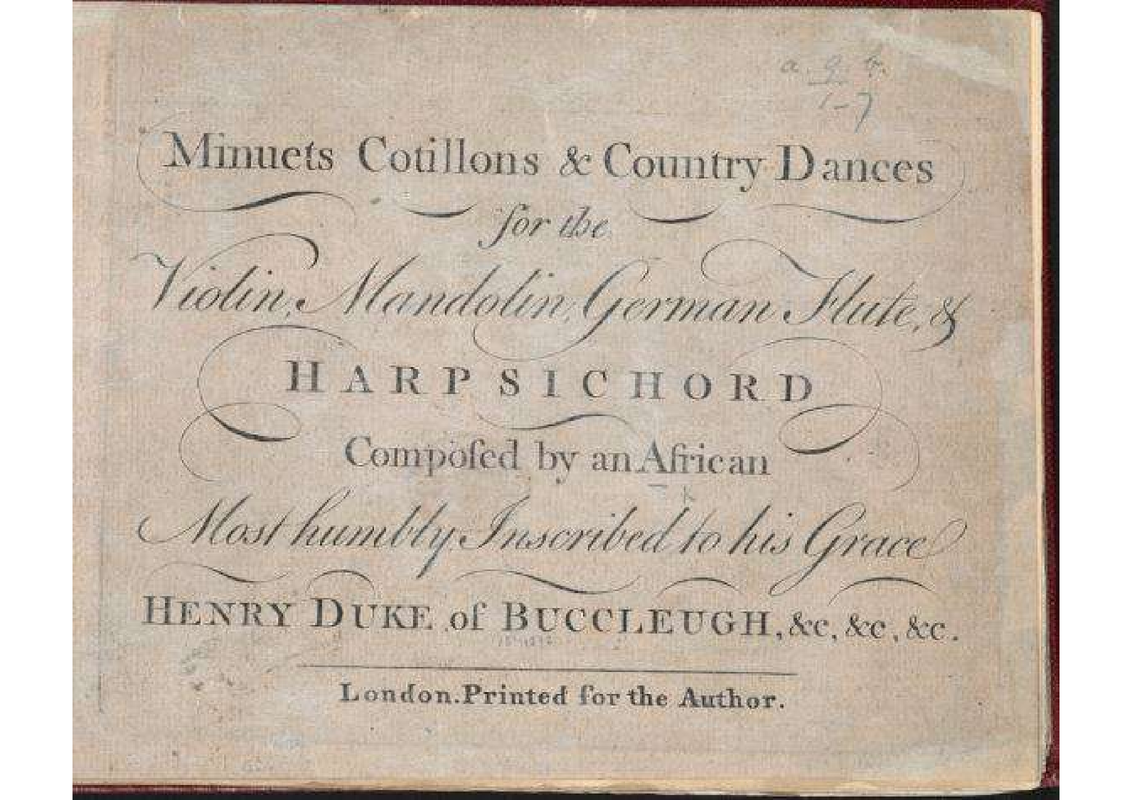 a. 9. b.
1-7
Minuets Cotillons & Country Dances
for the
Violin, Mandolin, German Flute, &
HARPSICHORD
Compoſed by an African
Most humbly Inscribed to his Grace
HENRY DUKE of BUCCLEUGH, &c, &c, &c.
London. Printed for the Author.